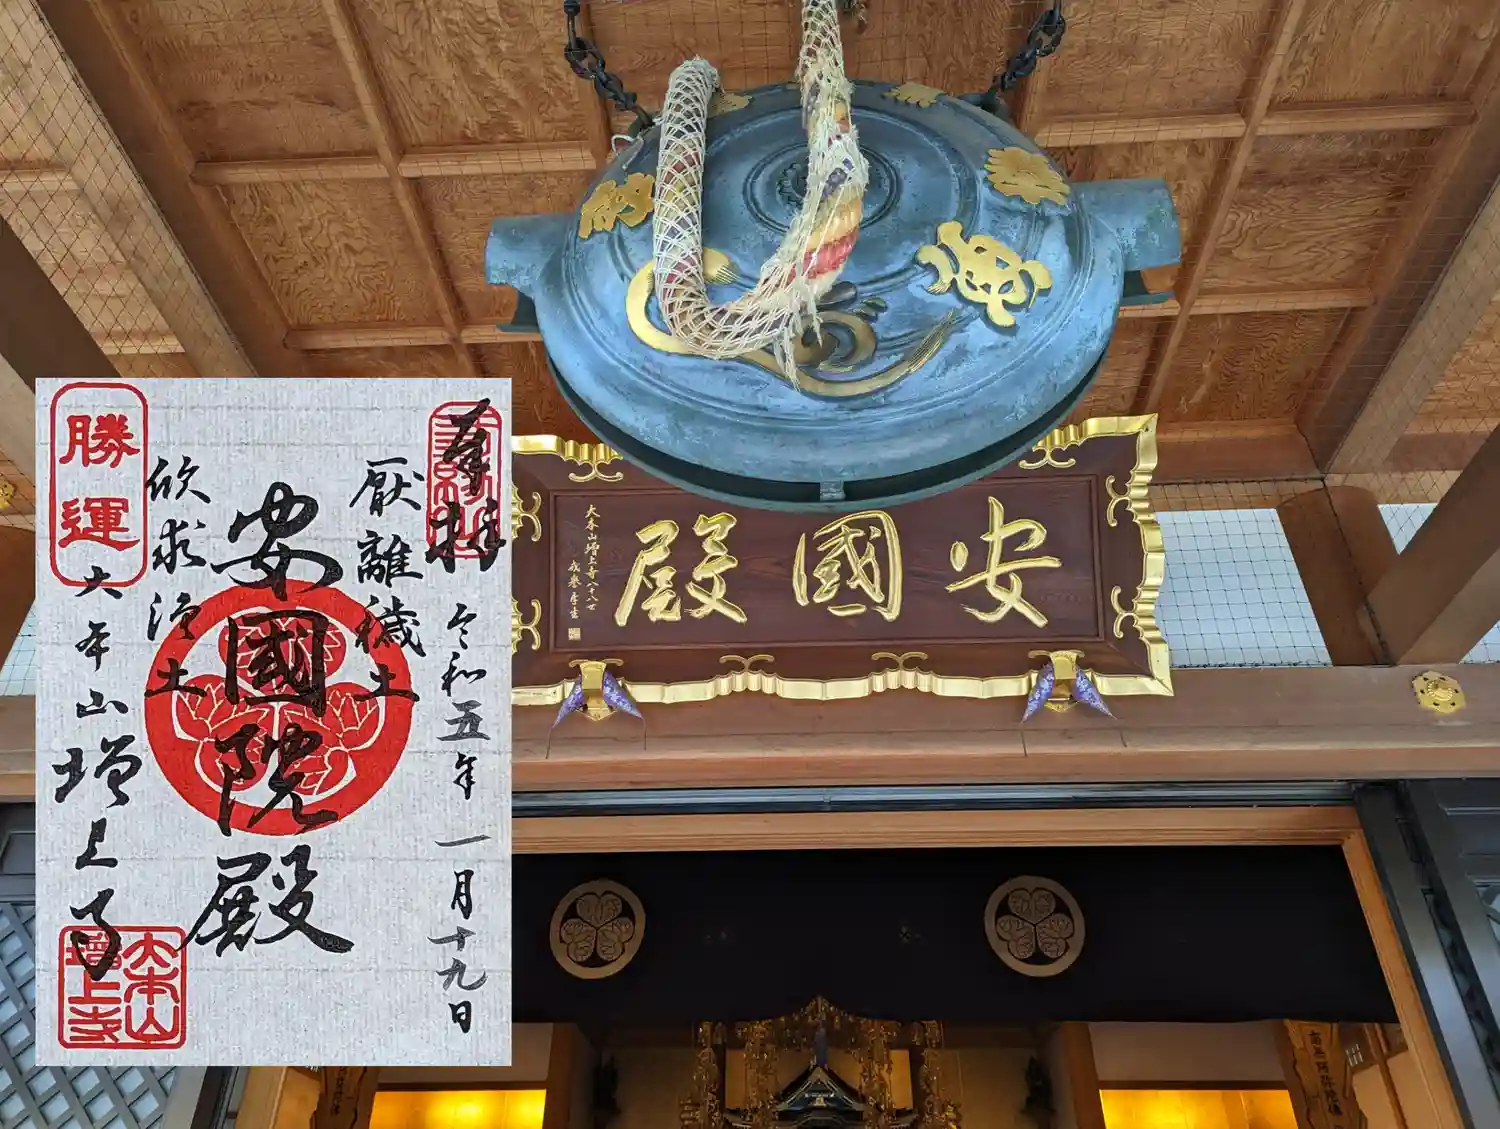 奉拝
令和五年一月十九日
厭離穢土
安國院殿
欣求浄土
勝運
大本山増上寺
大本山
増上寺
安國殿
大本山増上寺八十八世